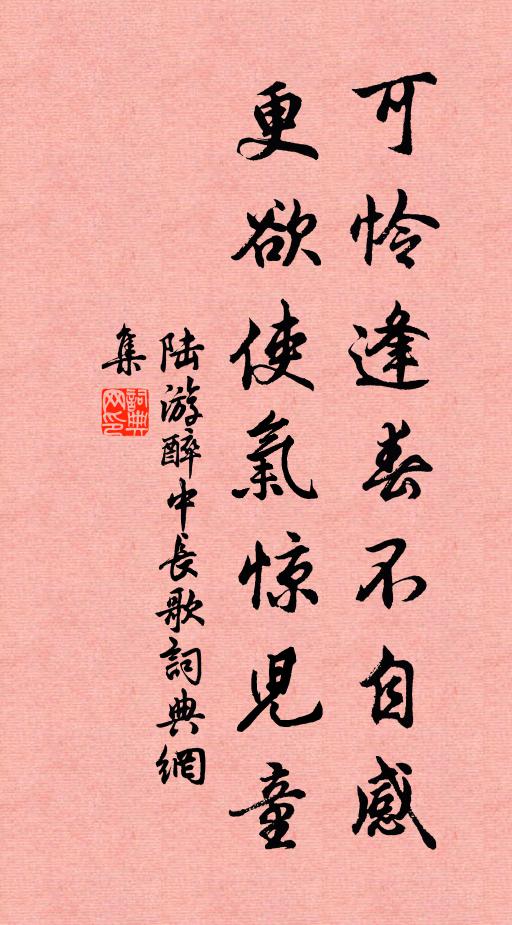 可怜逢春不自感
更欲使氣惊児童
陆游醉中長歌詞典網
集
詞典网印